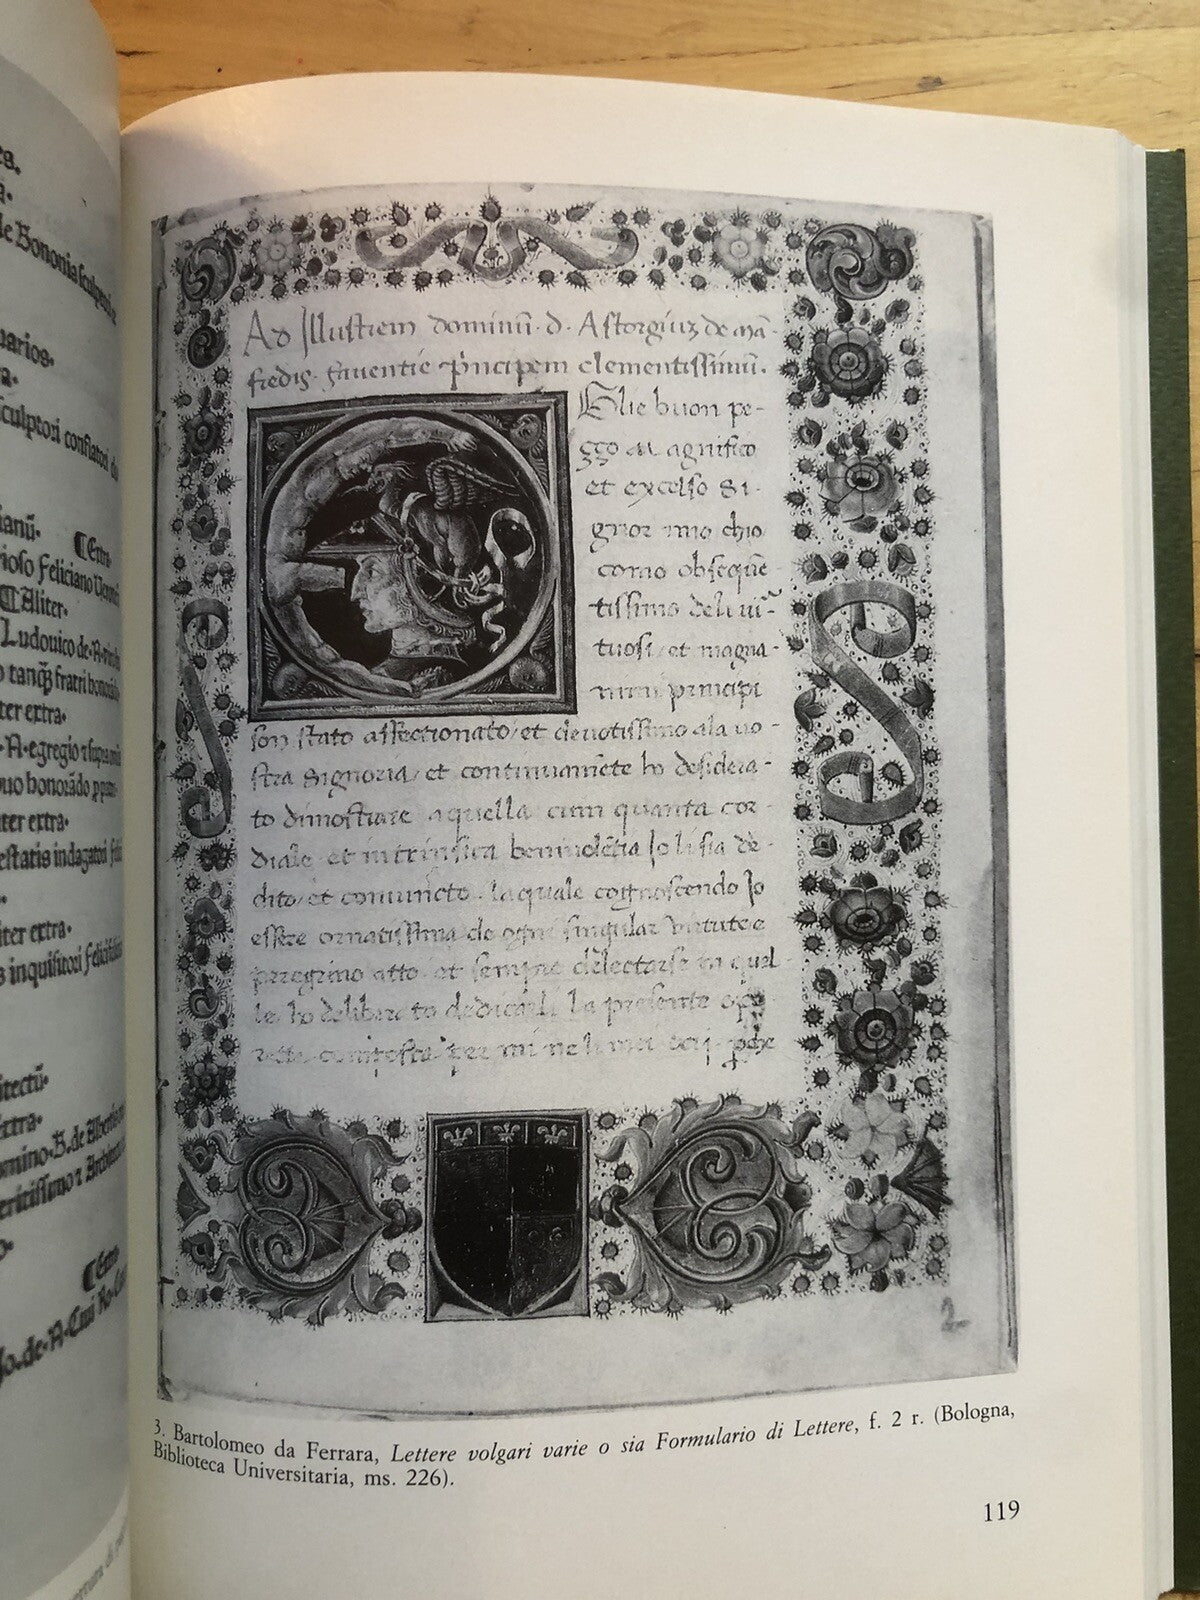 es.
de Bononia sculptori
uarios.
Sculptori conflatori
ianū.
¶Extra.
rioso Feliciano
¶Aliter.
Ludouico de.A.
tanq̄ fratri
iter extra.
.A.egregio
uo honorādo
ter extra.
estatis indagatori
iter extra.
s inquisitori
tectū.
xtra.
omino.B.de Alberti
eritissimo Architec
¶Extra
Jo.de.A.
Ad Jllustrem dominū.d.Astorgiuz de mā-
fredis.fauentie pr̄ncipem clementissimū.
Elie buon pe-
zzo Magnifico
et excelso Si-
gnor mio chio
como obseque-
tissimo deli uir-
tuosi et magna-
nimi principi
son stato affectionato/et deuotissimo ala uo-
stra Signoria/et continuamēte ho desidera-
to dimostrare aquella cum quanta cor-
diale et intrinsica beniuolētia Jo li sia de-
dito/et coniuncto.laquale cognoscendo Jo
essere ornatissima de ogni singular virtute e
peregrino atto et sempre delectarse in quel-
le/ho deliberato dedicarli la presente ope-
retta composta per mi neli mei
2
3. Bartolomeo da Ferrara, Lettere volgari varie o sia Formulario di Lettere, f. 2 r. (Bologna,
Biblioteca Universitaria, ms. 226).
119